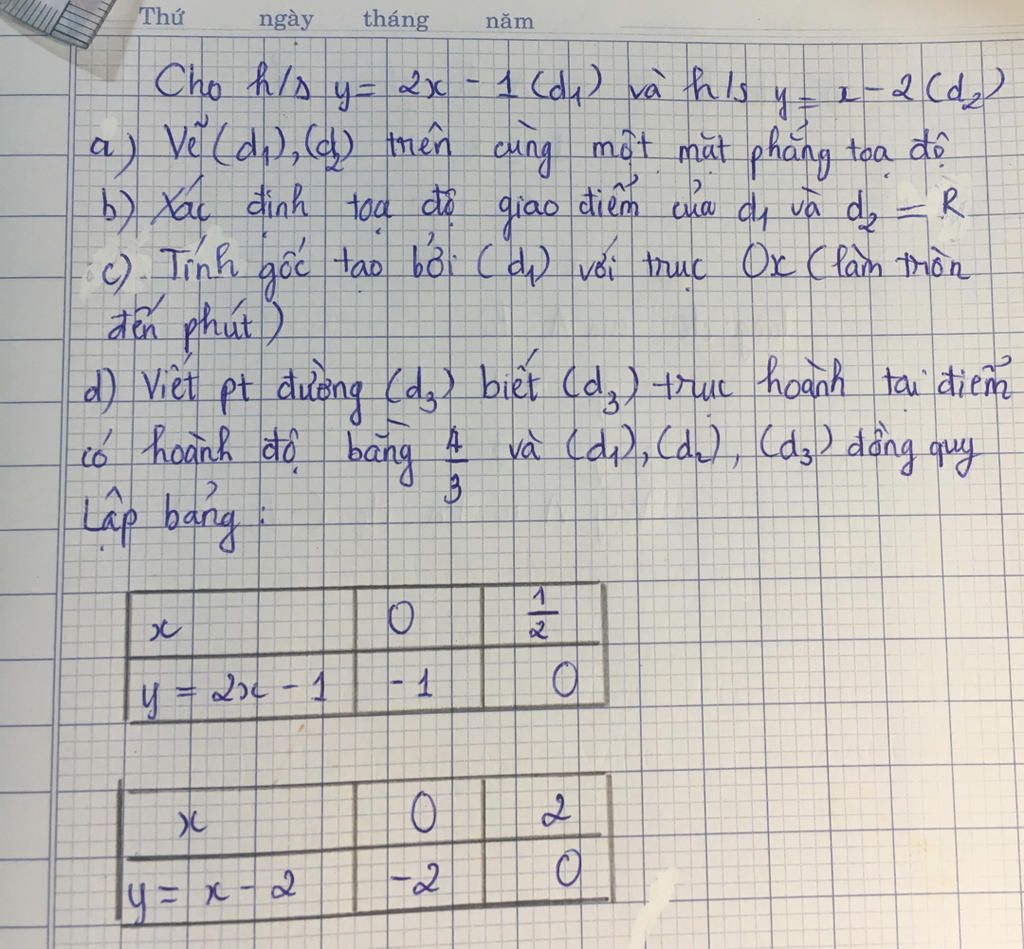 Thứ ngày tháng năm
Cho h/s y = 2x - 1 (d₁) và h/s y = x - 2 (d₂)
a) Vẽ (d₁), (d₂) trên cùng một mặt phẳng tọa độ
b) Xác định tọa độ giao điểm của d₁ và d₂ = R
c) Tính gốc tạo bởi (d₁) với trục Ox (làm tròn
đến phút)
d) Viết pt đường (d₃) biết (d₃) trục hoành tại điểm
có hoành độ bằng 4/3 và (d₁), (d₂), (d₃) đồng quy
Lập bảng :
x 0 1/2
y = 2x - 1 -1 0
x 0 2
y = x - 2 -2 0